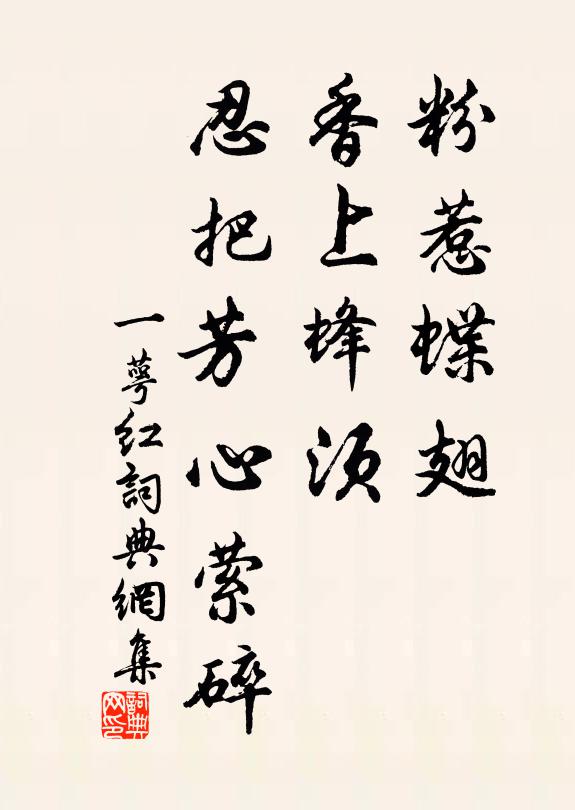 粉惹蝶翅
香上蜂須
忍把芳心縈碎
一萼紅詞典網集
詞典網印